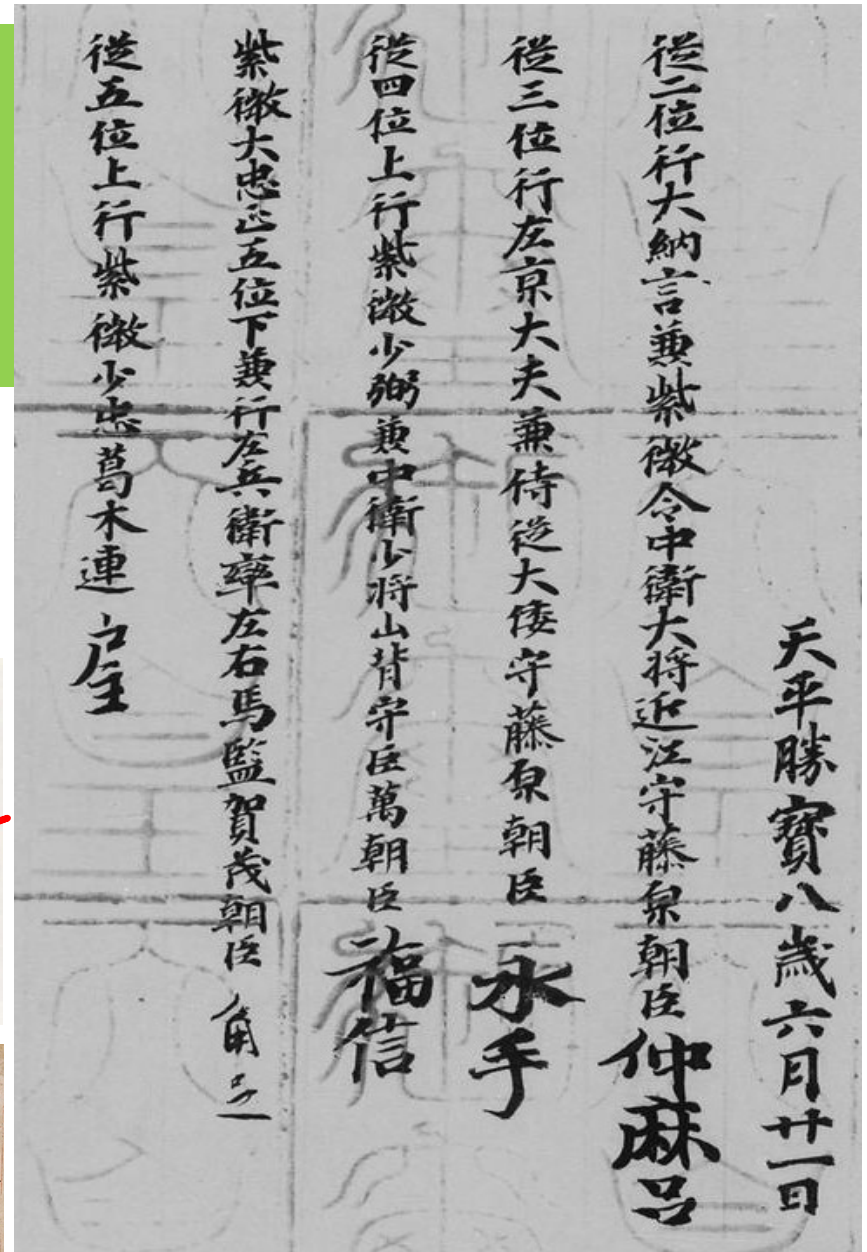 天平勝寶八歳六月廿一日
従二位行大納言兼紫微令中衛大将近江守藤原朝臣仲麻呂
従三位行左京大夫兼侍従大倭守藤原朝臣永手
従四位上行紫微少弼兼中衛少将山背守巨萬朝臣福信
紫微大忠正五位下兼行左兵衛率左右馬監賀茂朝臣角足
従五位上行紫微少忠葛木連戸主